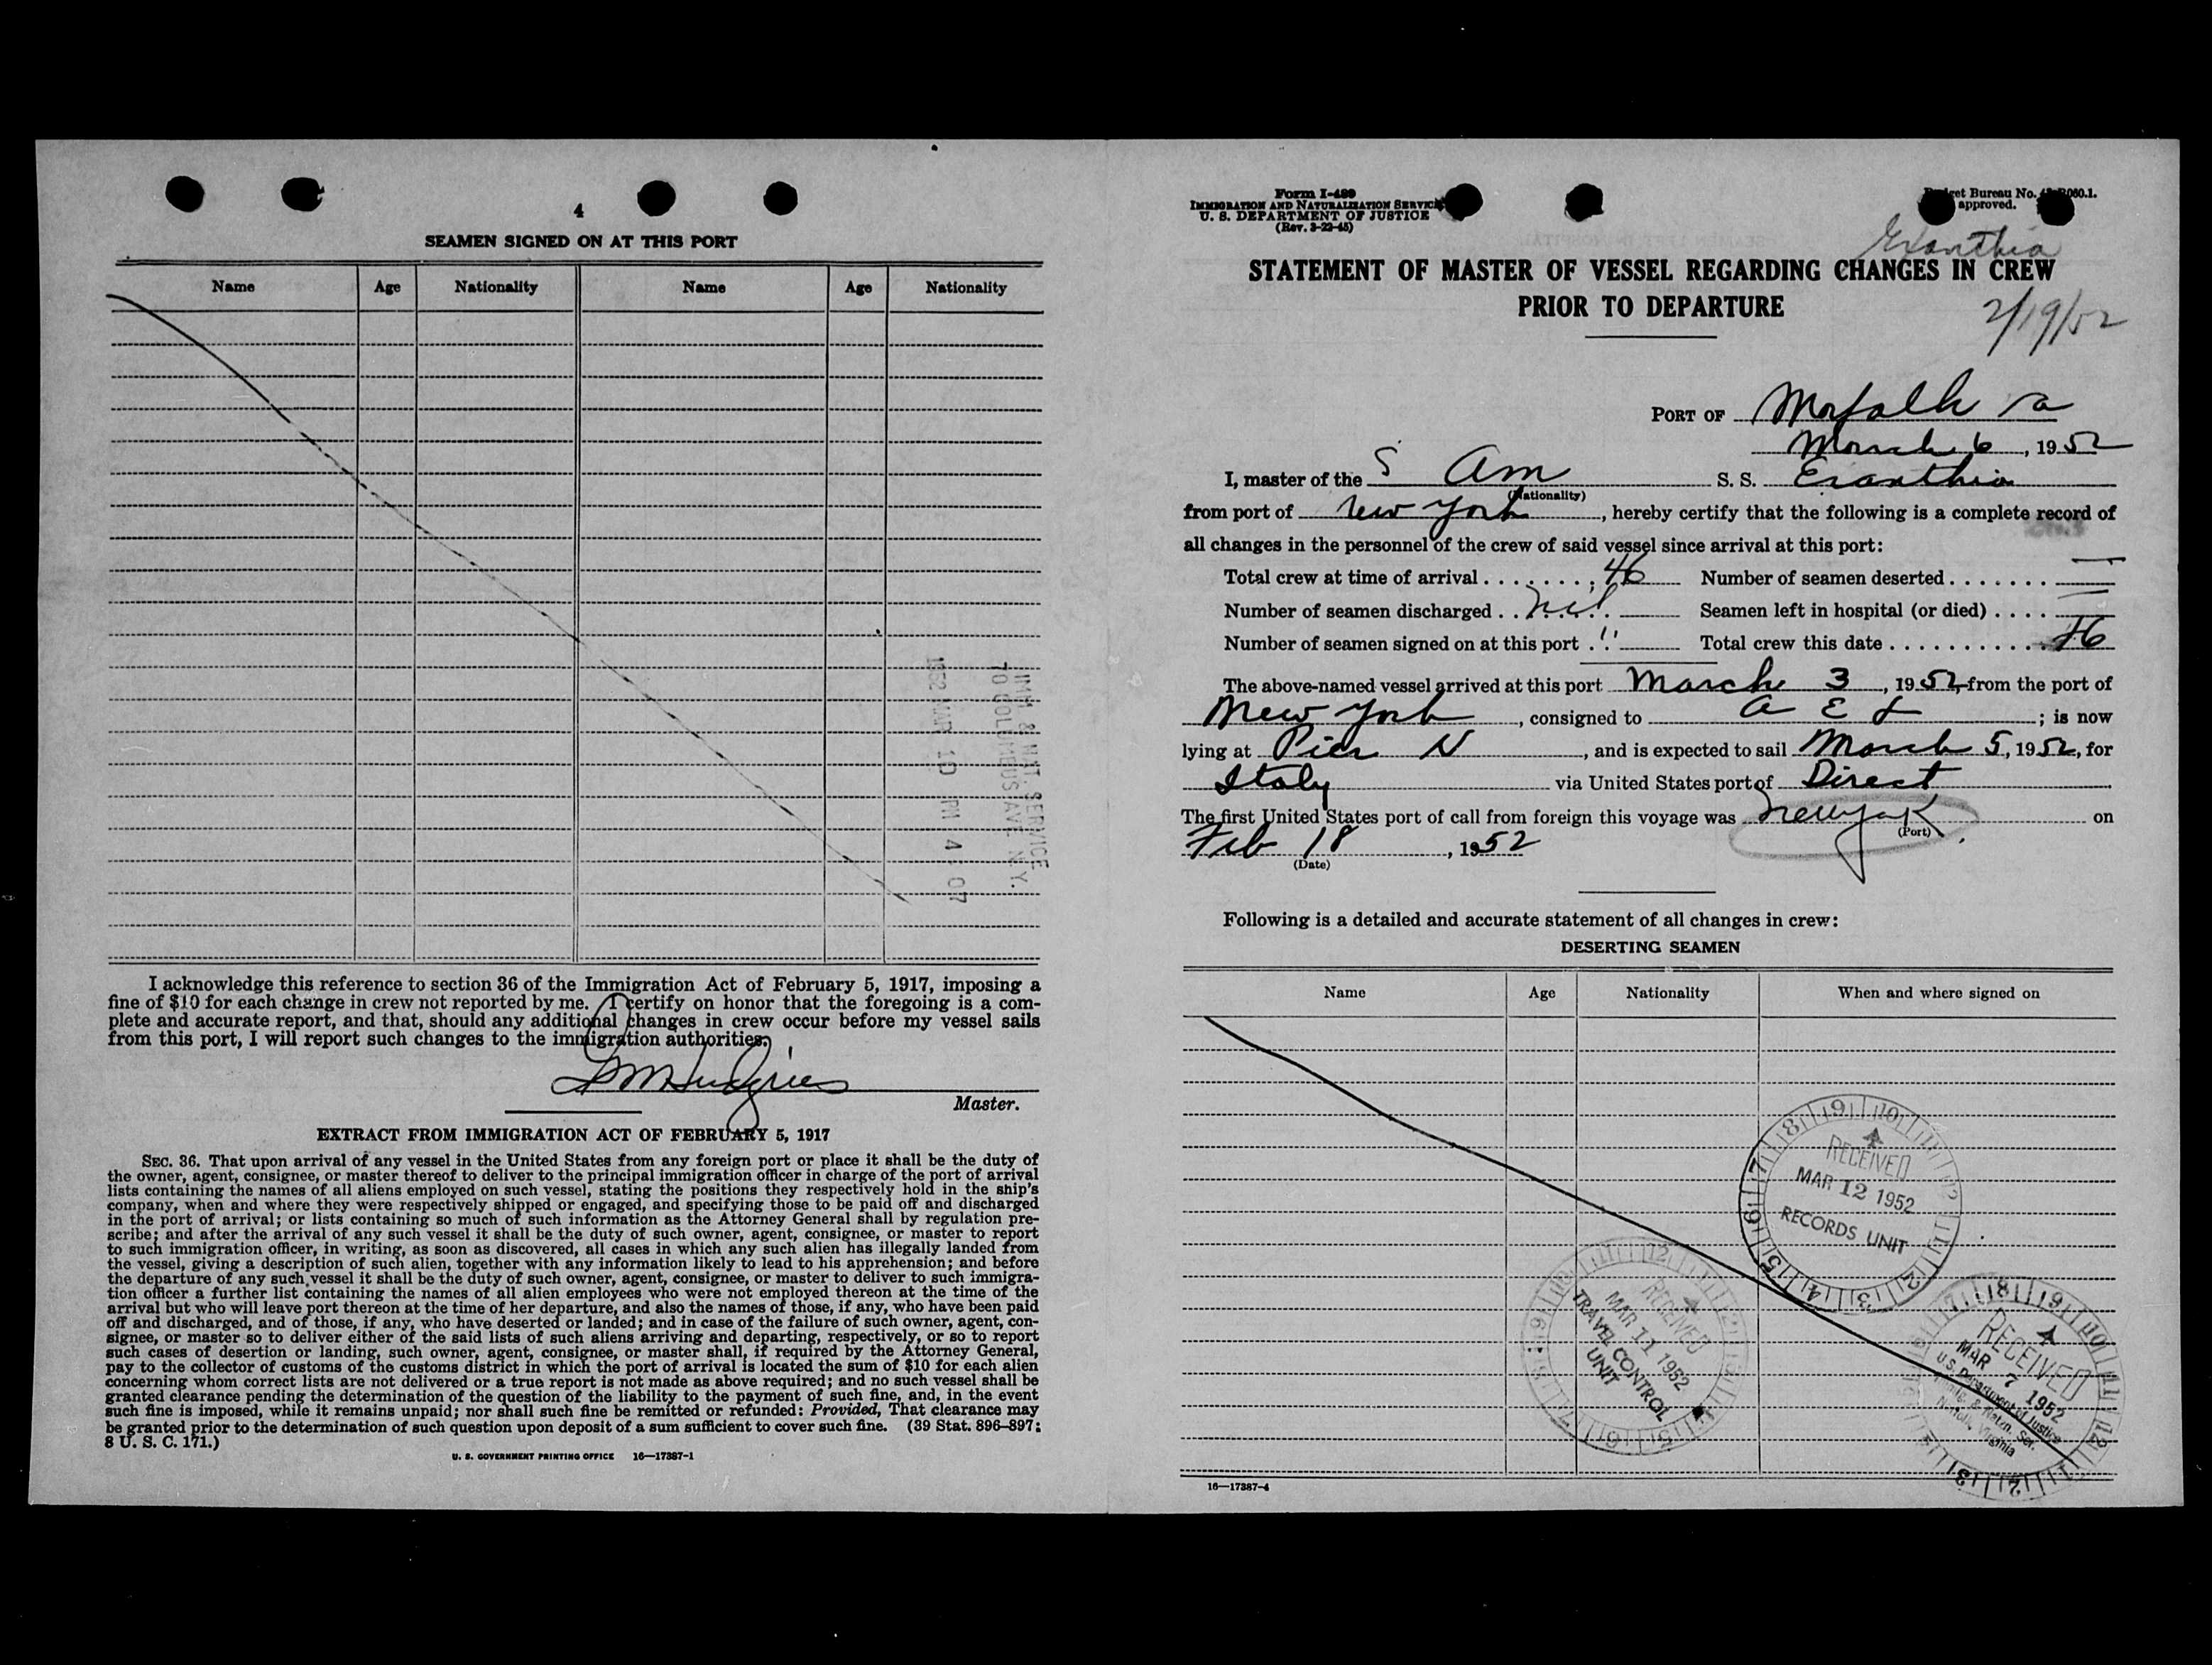 4
SEAMEN SIGNED ON AT THIS PORT
Name Age Nationality Name Age Nationality
IMM. & NAT. SERVICE
70 COLUMBUS AVE. N.Y.
1952 MAR 10 PM 4 07
I acknowledge this reference to section 36 of the Immigration Act of February 5, 1917, imposing a
fine of $10 for each change in crew not reported by me. I certify on honor that the foregoing is a com-
plete and accurate report, and that, should any additional changes in crew occur before my vessel sails
from this port, I will report such changes to the immigration authorities.
Master.
EXTRACT FROM IMMIGRATION ACT OF FEBRUARY 5, 1917
SEC. 36. That upon arrival of any vessel in the United States from any foreign port or place it shall be the duty of
the owner, agent, consignee, or master thereof to deliver to the principal immigration officer in charge of the port of arrival
lists containing the names of all aliens employed on such vessel, stating the positions they respectively hold in the ship's
company, when and where they were respectively shipped or engaged, and specifying those to be paid off and discharged
in the port of arrival; or lists containing so much of such information as the Attorney General shall by regulation pre-
scribe; and after the arrival of any such vessel it shall be the duty of such owner, agent, consignee, or master to report
to such immigration officer, in writing, as soon as discovered, all cases in which any such alien has illegally landed from
the vessel, giving a description of such alien, together with any information likely to lead to his apprehension; and before
the departure of any such vessel it shall be the duty of such owner, agent, consignee, or master to deliver to such immigra-
tion officer a further list containing the names of all alien employees who were not employed thereon at the time of the
arrival but who will leave port thereon at the time of her departure, and also the names of those, if any, who have been paid
off and discharged, and of those, if any, who have deserted or landed; and in case of the failure of such owner, agent, con-
signee, or master so to deliver either of the said lists of such aliens arriving and departing, respectively, or so to report
such cases of desertion or landing, such owner, agent, consignee, or master shall, if required by the Attorney General,
pay to the collector of customs of the customs district in which the port of arrival is located the sum of $10 for each alien
concerning whom correct lists are not delivered or a true report is not made as above required; and no such vessel shall be
granted clearance pending the determination of the question of the liability to the payment of such fine, and, in the event
such fine is imposed, while it remains unpaid; nor shall such fine be remitted or refunded: Provided, That clearance may
be granted prior to the determination of such question upon deposit of a sum sufficient to cover such fine. (39 Stat. 896–897;
8 U. S. C. 171.)
U. S. GOVERNMENT PRINTING OFFICE 16—17387-1
Form I-489
IMMIGRATION AND NATURALIZATION SERVICE
U. S. DEPARTMENT OF JUSTICE
(Rev. 3-22-45)
Bureau No.
approved.
Exanthia
STATEMENT OF MASTER OF VESSEL REGARDING CHANGES IN CREW
PRIOR TO DEPARTURE
2/19/52
PORT OF Norfolk Va
March 6, 1952
I, master of the S Am S. S. Exanthia
(Nationality)
from port of New York, hereby certify that the following is a complete record of
all changes in the personnel of the crew of said vessel since arrival at this port:
Total crew at time of arrival 46 Number of seamen deserted —
Number of seamen discharged Nil Seamen left in hospital (or died) —
Number of seamen signed on at this port " Total crew this date 46
The above-named vessel arrived at this port March 3, 1952, from the port of
New York, consigned to A E L; is now
lying at Pier N, and is expected to sail March 5, 1952, for
Italy via United States port of Direct
The first United States port of call from foreign this voyage was New York on
(Port)
Feb 18, 1952
(Date)
Following is a detailed and accurate statement of all changes in crew:
DESERTING SEAMEN
Name Age Nationality When and where signed on
RECEIVED
MAR 12 1952
RECORDS UNIT
RECEIVED
MAR 11 1952
TRAVEL CONTROL
UNIT
RECEIVED
MAR 7 1952
U.S. Department of Justice
Immig. & Natzn. Ser.
Norfolk, Virginia
16—17387-4